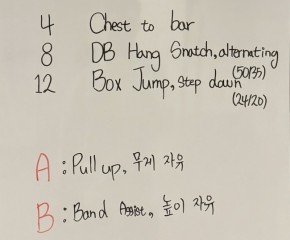 4 Chest to bar
8 DB Hang Snatch, alternating
(50/35)
12 Box Jump, step down
(24/20)
A : Pull up, 무게 자유
B : Band Assist, 높이 자유